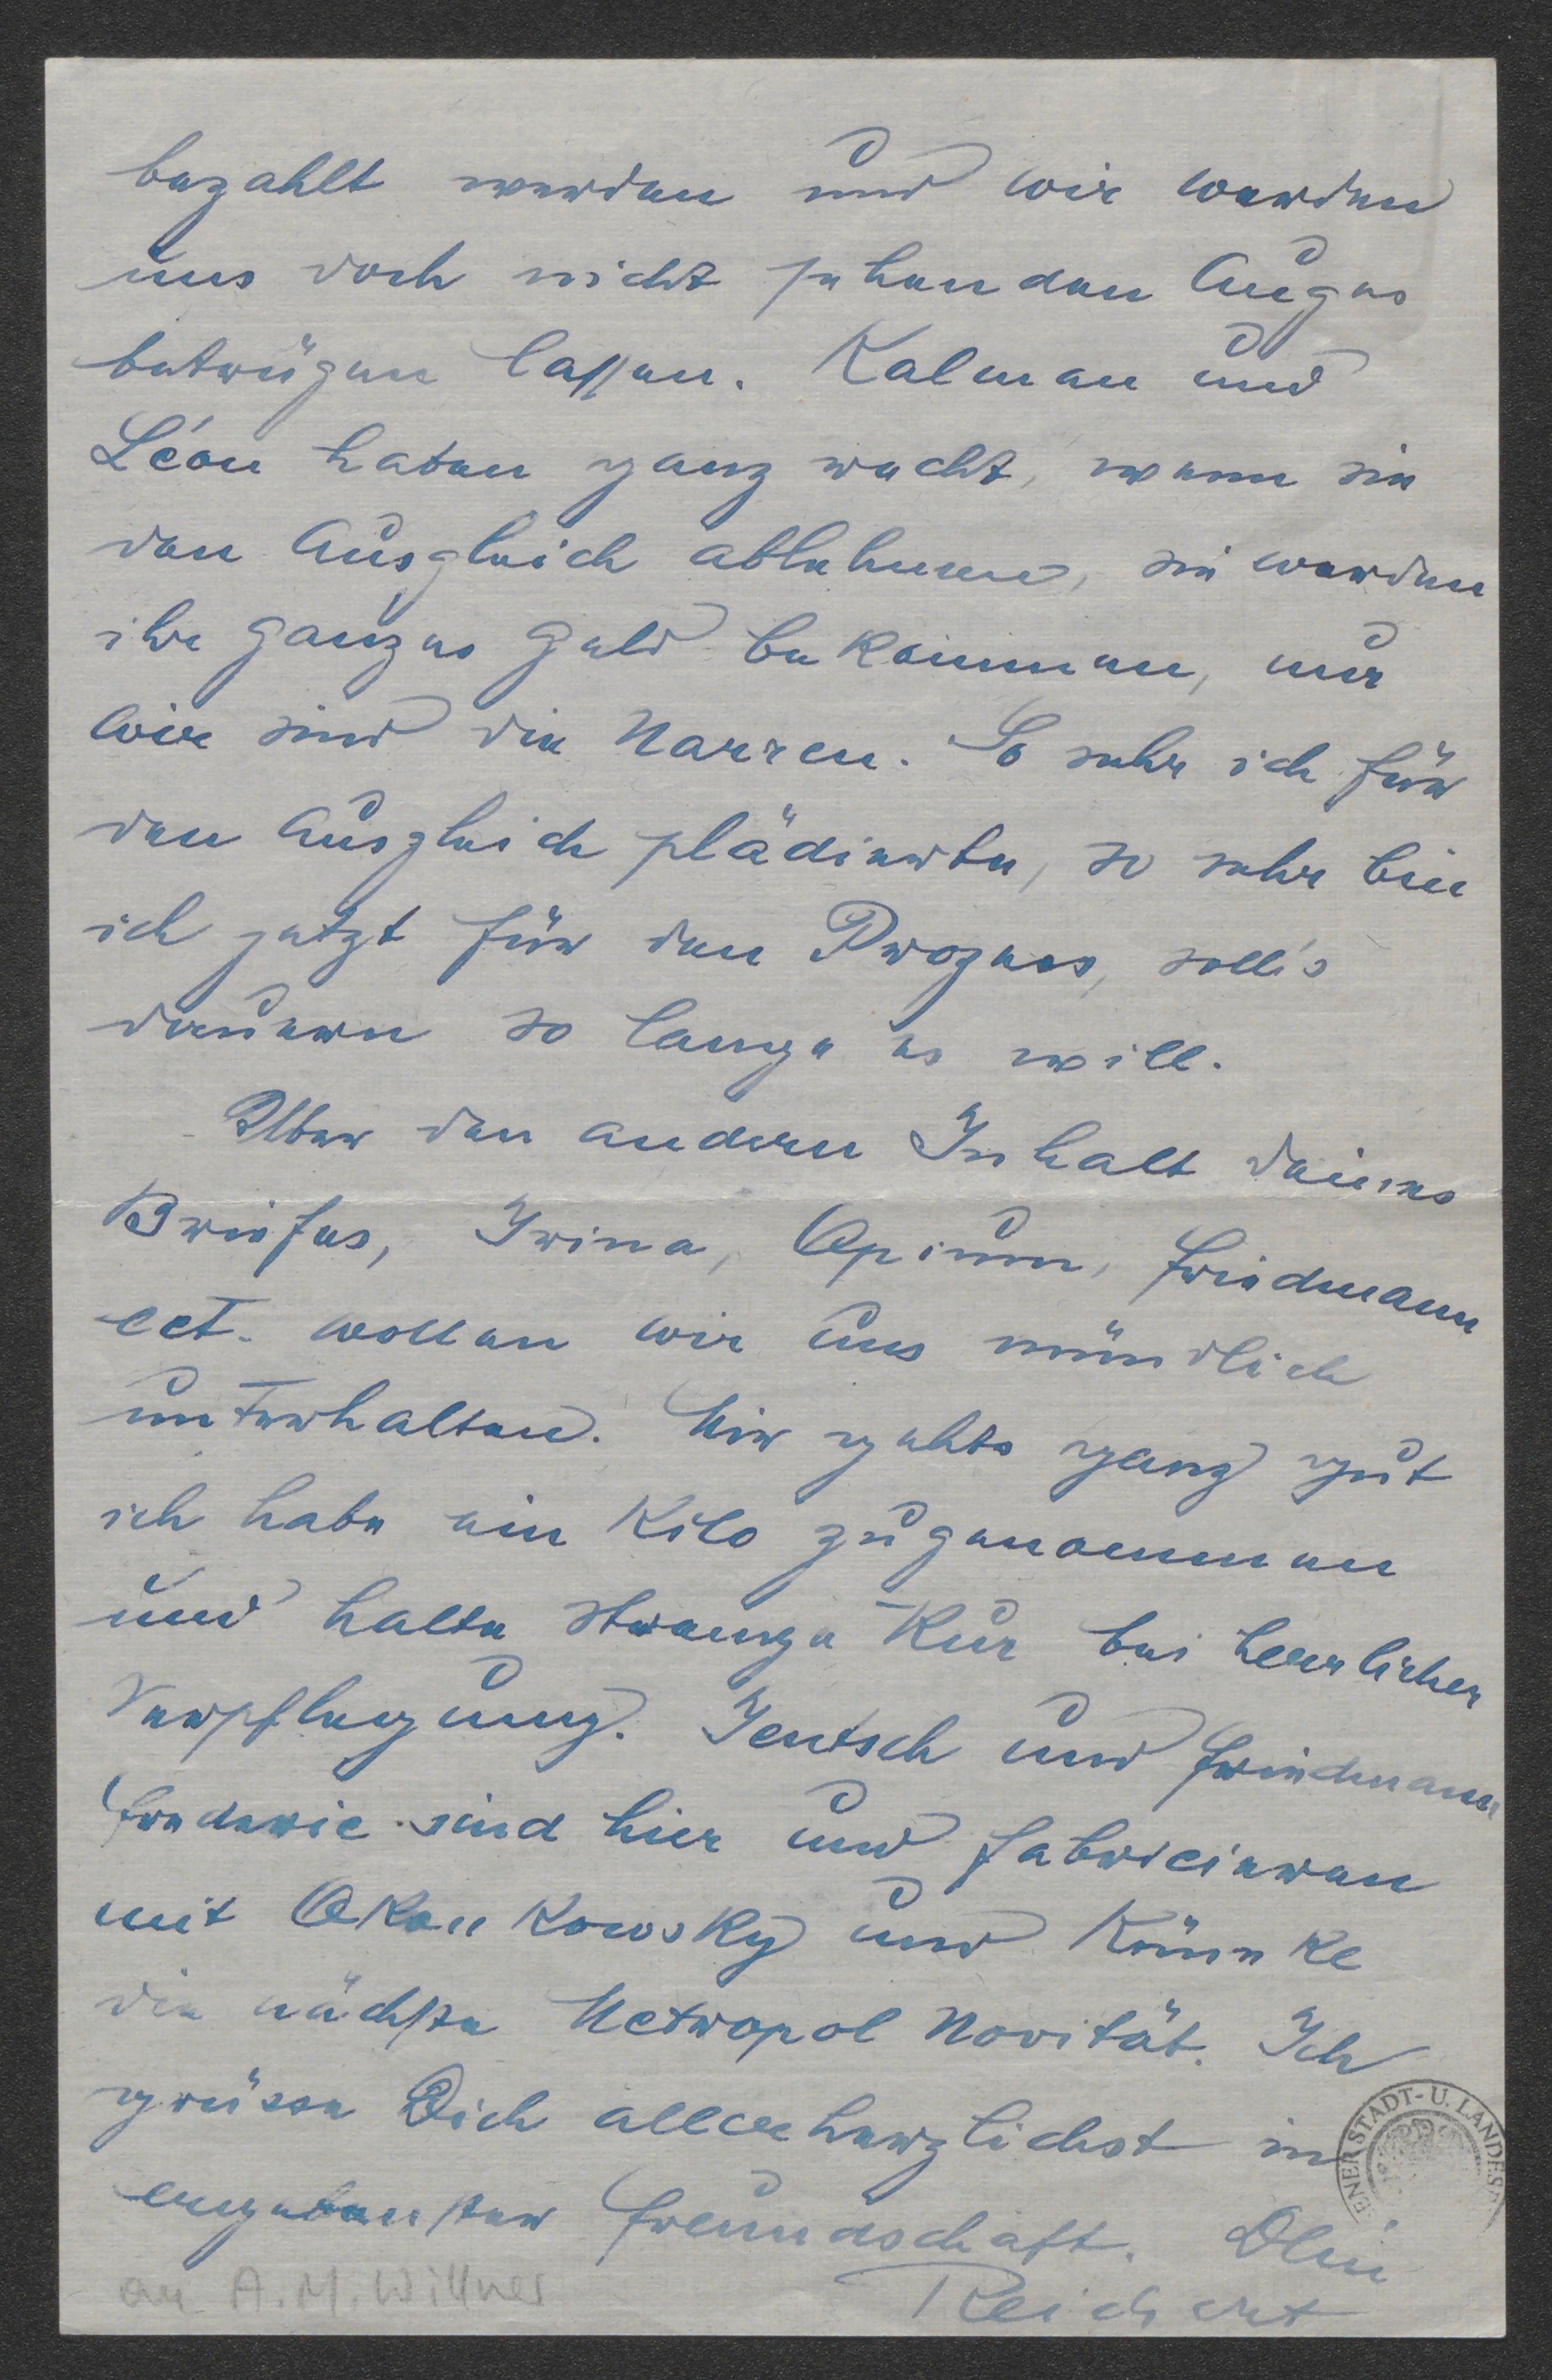 bezahlt werden und wir werden
uns doch nicht sehenden Auges
betrügen lassen. Kalman und
Léon haben ganz recht, wenn sie
den Ausgleich ablehnen, sie werden
ihr ganzes Geld bekommen, nur
wir sind die Narren. So sehr ich für
den Ausgleich plädierte, so sehr bin
ich jetzt für den Prozess, soll's
dauern so lange es will.
Über den andern Inhalt deines
Briefes, Irina, Opium, Friedmann
ect. wollen wir uns mündlich
unterhalten. Mir gehts ganz gut
ich habe ein Kilo zugenommen
und halte strenge Kur bei herrlicher
Verpflegung. Jentsch und Friedmann
Frederic sind hier und fabricieren
mit Okonkowsky und Künneke
die nächste Metropol Novität. Ich
grüsse Dich allerherzlichst in
ergebenster Freundschaft. Dein
Reichert
an A. M. Willner
ENER STADT- U. LANDES